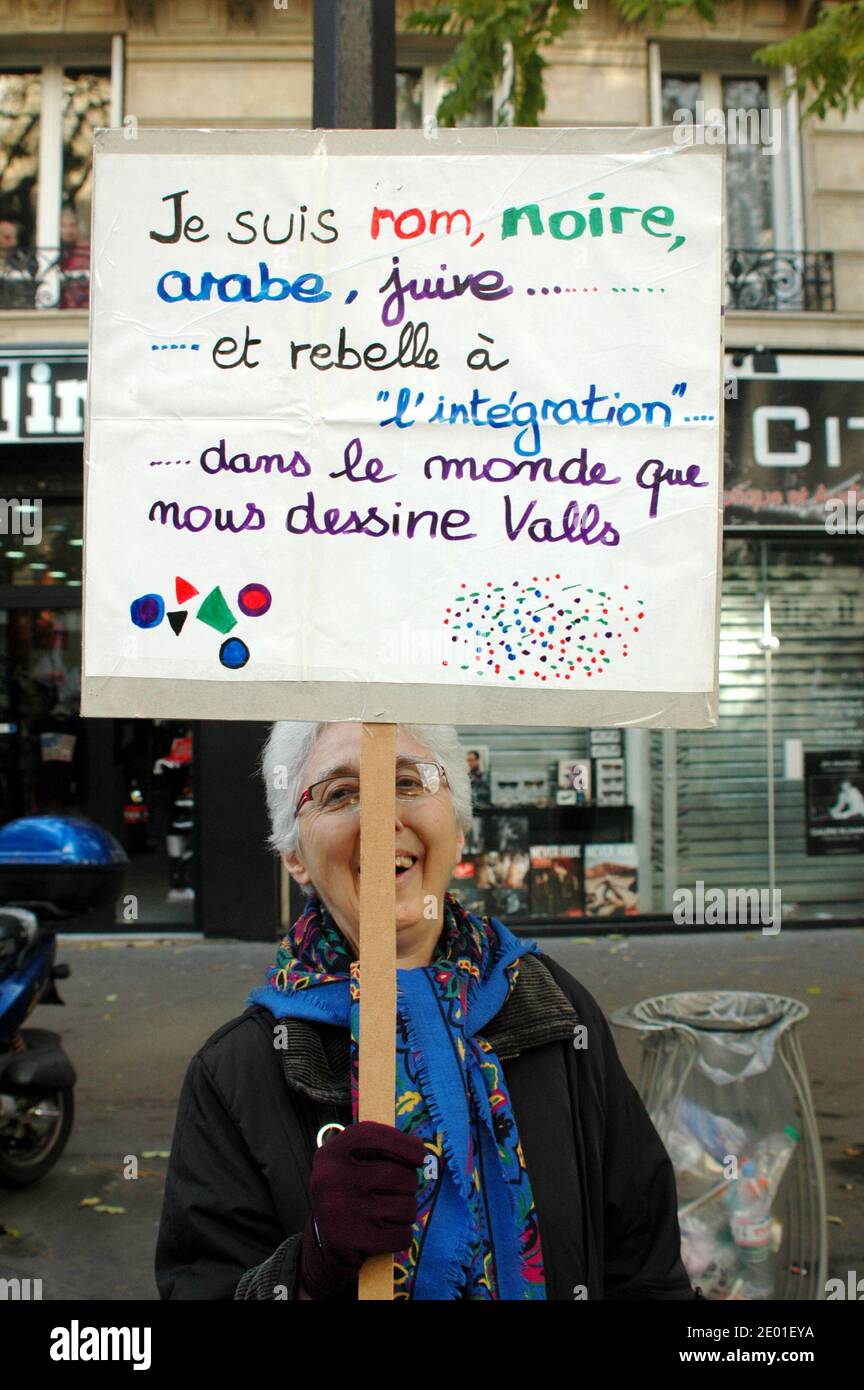 Je suis rom, noire,
arabe, juive ..................
..... et rebelle à
"l'intégration" ....
..... dans le monde que
nous dessine Valls
in
CIT
alamy
alamy
Image ID: 2E01EYA
www.alamy.com